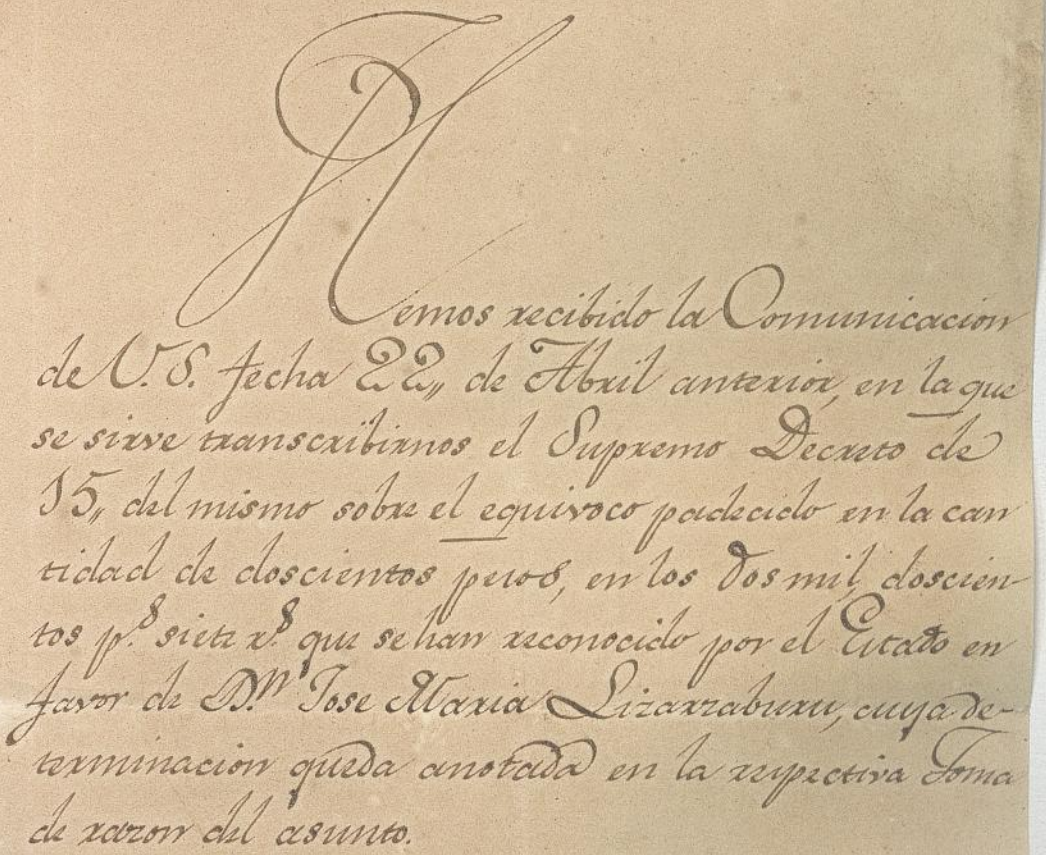 Hemos recibido la Comunicacion
de V. S. fecha 22,, de Abril anterior, en la que
se sirve transcribirnos el Supremo Decreto de
15,, del mismo sobre el equivoco padecido en la can
tidad de doscientos pesos, en los Dos mil, doscien-
tos p.s siete r.s que se han reconocido por el Estado en
favor de D.n Jose Maria Lizarzaburu, cuya de-
terminacion queda anotada en la respectiva Toma
de razon del asunto.